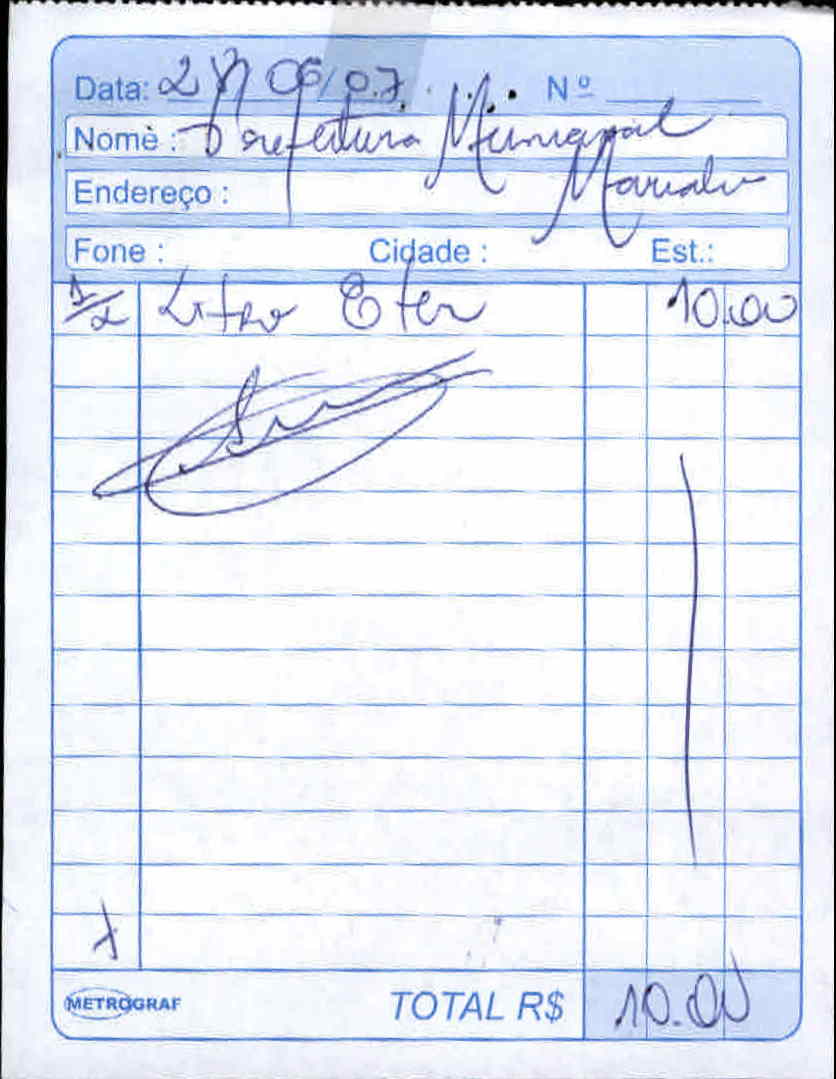 Data: 06/07 Nº
Nome : Prefeitura Municipal
Endereço : Marialva
Fone : Cidade : Est.:
1/2 Litro Eter 10.00
METROGRAF TOTAL R$ 10.00